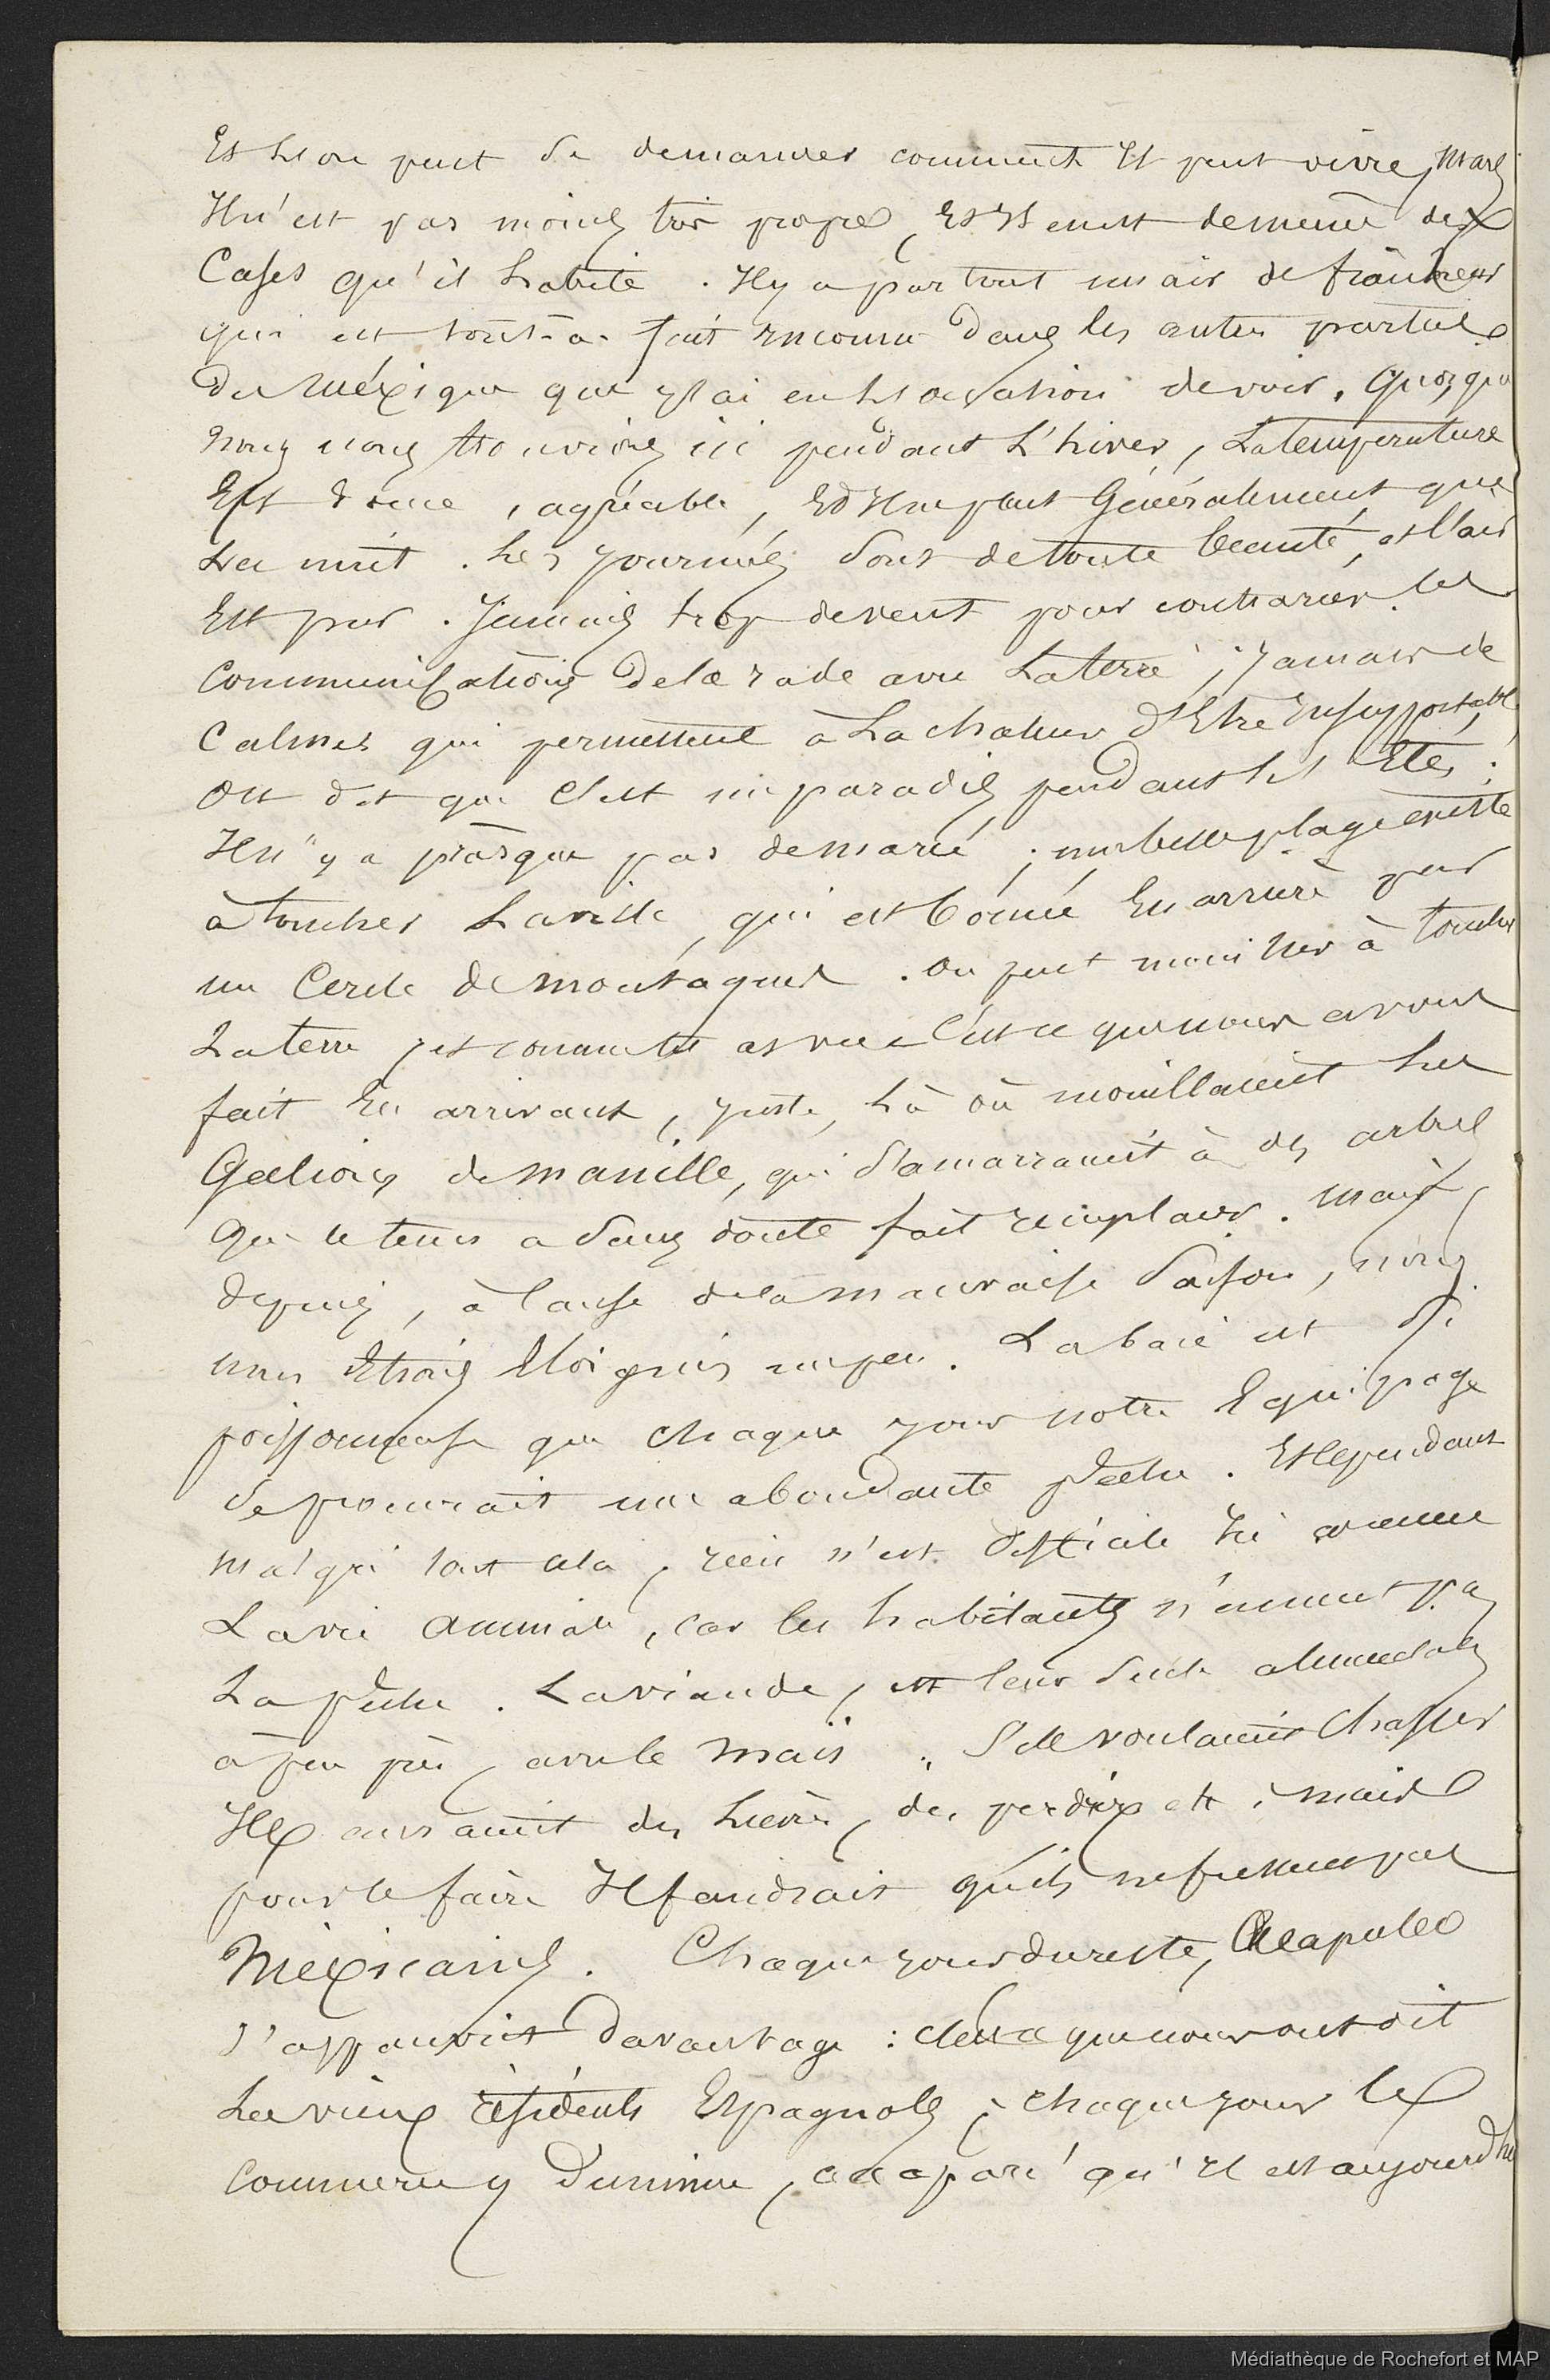 Et l'on peut se demander comment Il peut vivre, mais
Il n'est pas moins très propre, Et Il en est de même des
Cases qu'il habite. Il y a partout un air de fraîcheur
qui est tout-à-fait Inconnu dans les autres parties
Du Méxique que j'ai eu l'occasion de voir. Quoique
nous nous trouvions ici pendant L'hiver, La température
Est douce, agréable, Et Il ne pleut Généralement que
La nuit. Les journées Sont de toute beauté, et l'air
Est pur. Jamais trop de vent pour contrarier les
Communications De la rade avec La terre; jamais de
Calmes qui permettent à La chaleur d'Etre Insupportable,
On dit que C'est un paradis pendant les Etés;
Il n'y a presque pas de marée; une belle plage existe
à toucher La ville, qui est bornée En arrière par
un Cercle De montagnes. On peut mouiller à toucher
La terre, c'est ce que nous avons
fait En arrivant, juste, Là où mouillaient Les
Galions de Manille, qui S'amarraient à des arbres
que le tems a Sans doute fait remplacer. Mais,
depuis, à Cause de la mauvaise Saison, nous
nous Etions Eloignés un peu. La baie est Si
poissonneuse que Chaque jour notre Equipage
Se procurait une abondante Pêche. Et Cependant
malgré tout cela, rien n'est difficile Ici comme
La vie animale, car les habitants n'aiment pas
La Pêche. La viande, est leur Seul aliment
à peu près, avec le maïs. S'ils voulaient Chasser
Ils auraient des Lièvres, des perdrix etc; mais
pour le faire Il faudrait qu'ils ne fussent pas
Méxicains. Chaque jour du reste, Acapulco
S'appauvrit Davantage: C'est ce que nous ont dit
Les vieux résidents Espagnols; Chaque jour le
Commerce y Diminue, accaparé qu'Il est aujourd'hui
Médiathèque de Rochefort et MAP